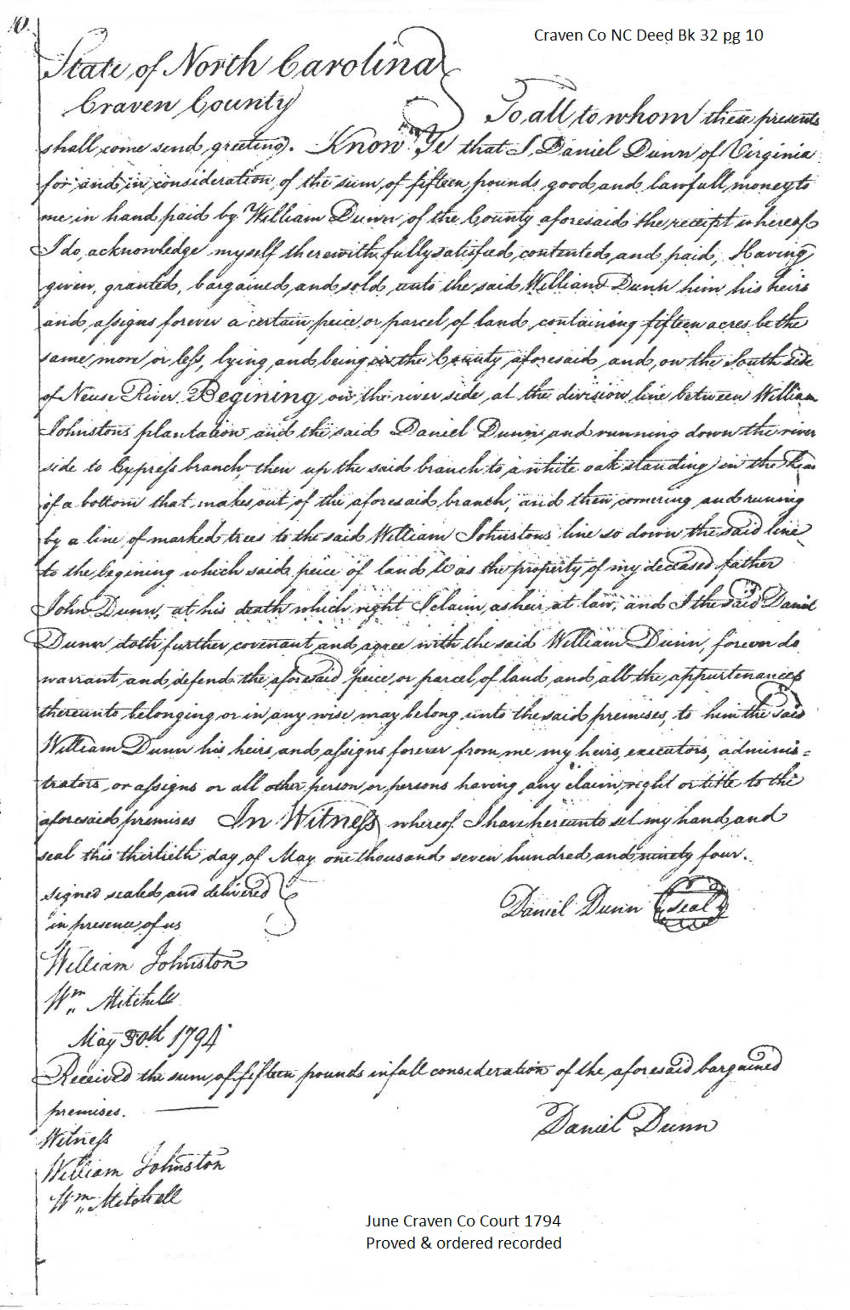 10.
Craven Co NC Deed Bk 32 pg 10
State of North Carolina
Craven County
To all to whom these presents
shall come send greeting. Know Ye that I Daniel Dunn of Virginia
for and in consideration of the sum of fifteen pounds good and lawfull money to
me in hand paid by William Dunn of the County aforesaid the receipt whereof
I do acknowledge myself therewith fully satisfied, contented, and paid, Having
given, granted, bargained, and sold, unto the said William Dunn him his heirs
and assigns forever a certain peice or parcel of land, containing fifteen acres be the
same more or less, lying and being in the County aforesaid and, on the South side
of Neuse River. Begining on the river side, at the division line between William
Johnstons plantation and the said Daniel Dunn and running down the river
side to Cypress branch, then up the said branch to a white oak standing in the
of a bottom that makes out of the aforesaid branch, and then cornering and running
by a line of marked trees to the said William Johnstons line so down the said line
to the begining which said peice of land was the property of my deceased father
John Dunn, at his death which right I claim, as heir at law, and I the said Daniel
Dunn doth further covenant and agree with the said William Dunn, forever do
warrant and defend the aforesaid peice or parcel of land and all the appurtenances
thereunto belonging or in any wise may belong unto the said premises, to him the said
William Dunn his heirs, and assigns forever from me my heirs, executors, adminis=
trators, or assigns or all other person or persons having any claim right or title to the
aforesaid premises In Witness whereof I have hereunto set my hand, and
seal this thirtieth day of May one thousand seven hundred and ninety four.
signed sealed and delivered
in presence of us
Daniel Dunn seal
William Johnston
Wm Mitchell
May 30th 1794
Received the sum of fifteen pounds in full consideration of the aforesaid bargained
premises.
Daniel Dunn
Witness
William Johnston
Wm Mitchell
June Craven Co Court 1794
Proved & ordered recorded